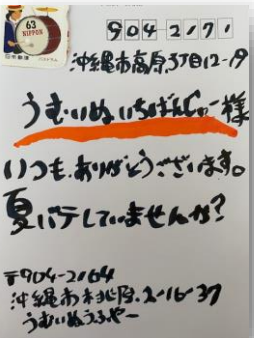 63
NIPPON
日本郵便
バスドラム
904-2171
沖縄市高原3丁目12-19
うむいぬいちばんじゅー様
いつもありがとうございます。
夏バテしていませんか?
〒904-2164
沖縄市桃原2-16-37
うむいぬうふやー